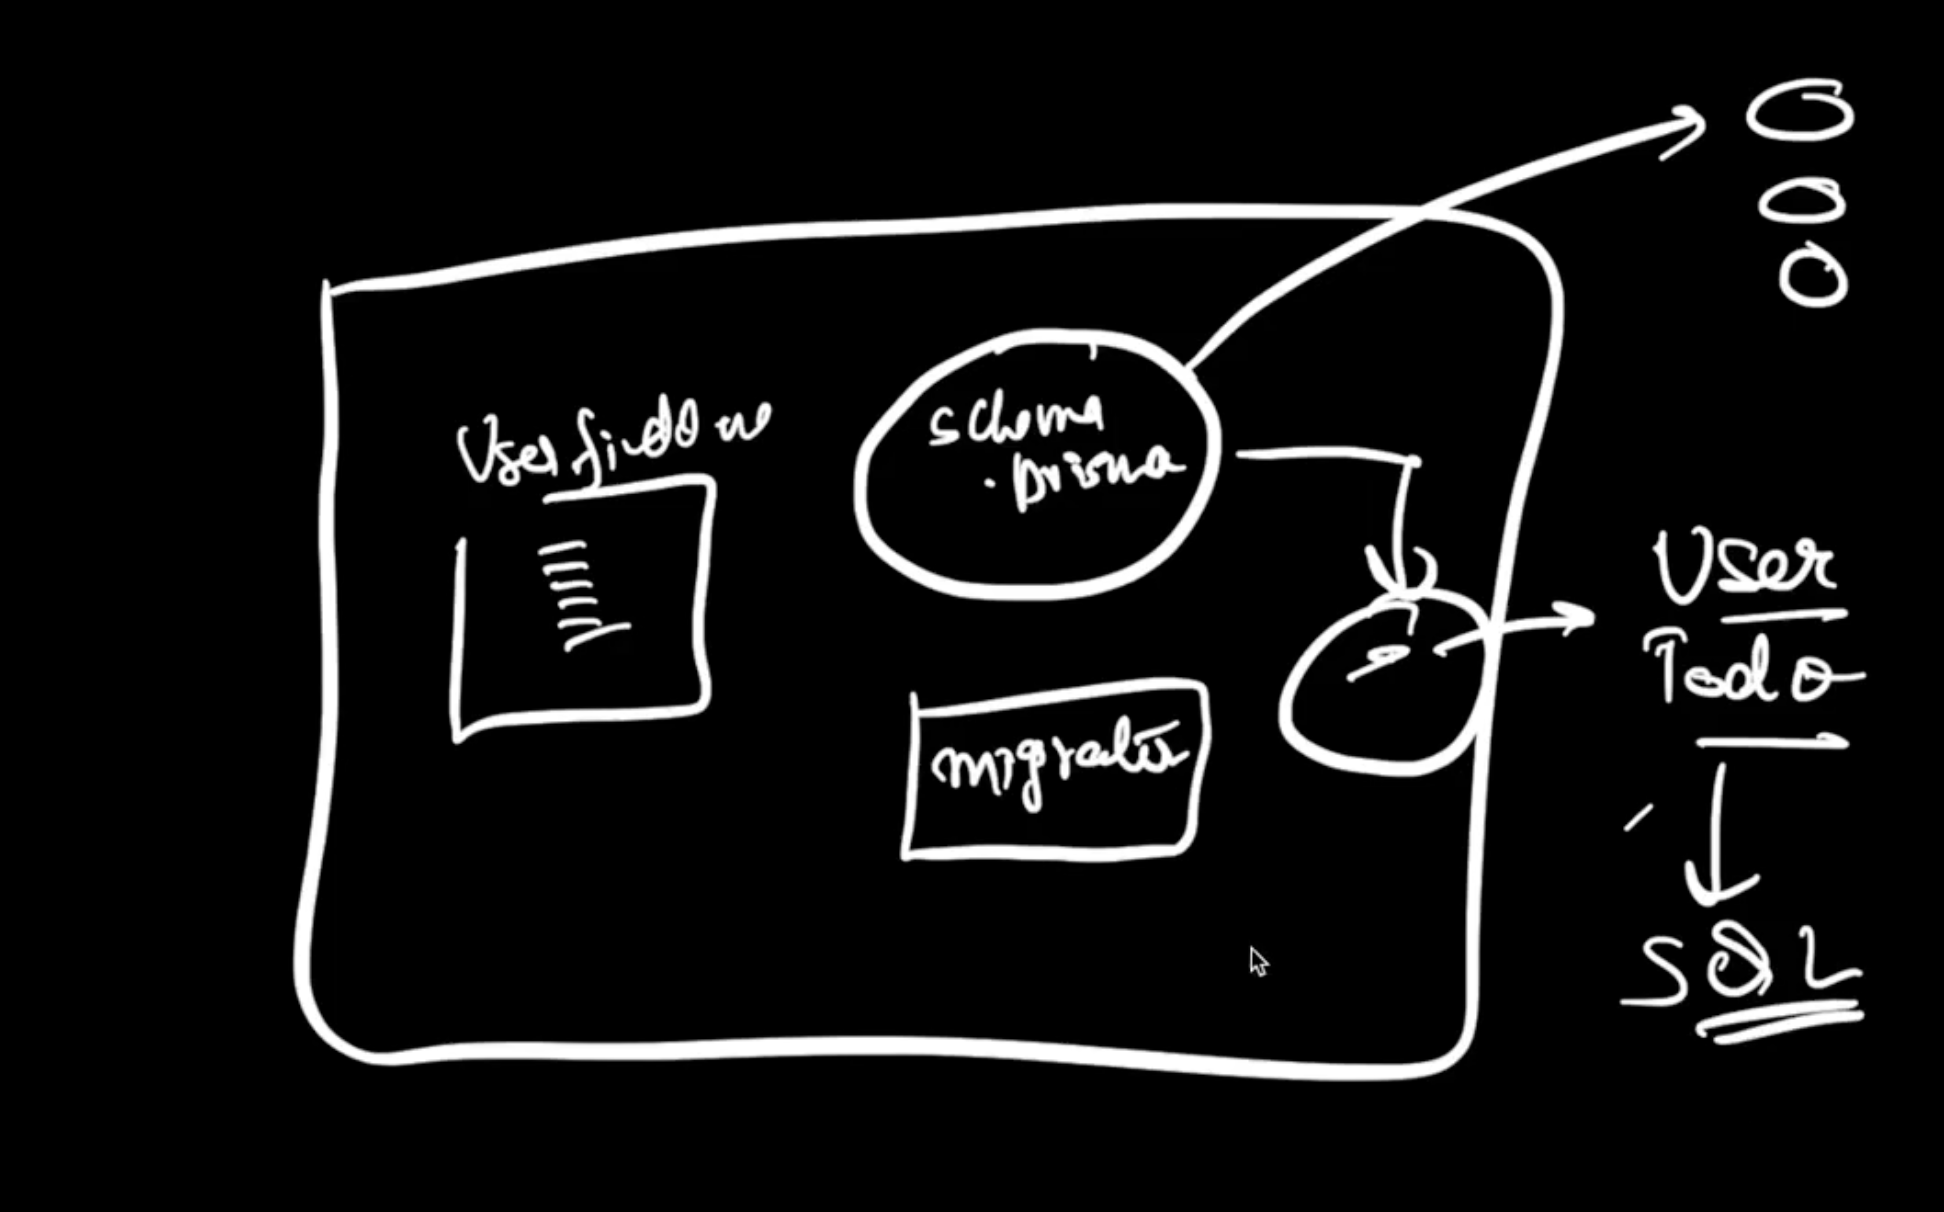 User find one
schema
.prisma
migration
User
Todo
SQL